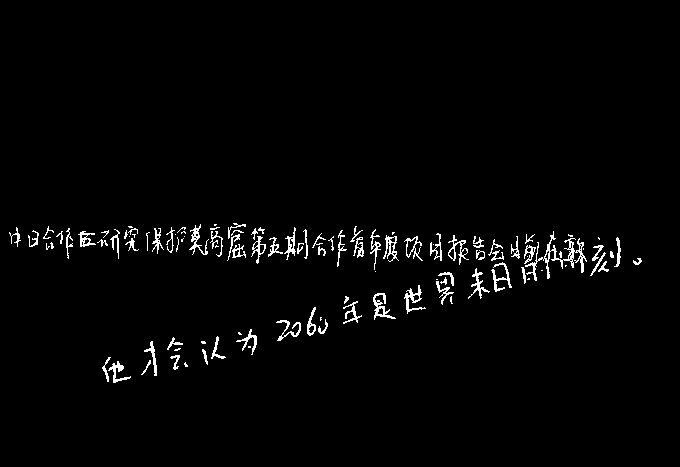 中日合作研究保护莫高窟第五期合作首年度项目报告会日前在敦
他才会认为2060年是世界末日的时刻。